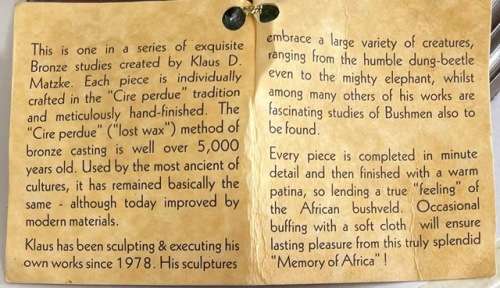 This is one in a series of exquisite
Bronze studies created by Klaus D.
Matzke. Each piece is individually
crafted in the "Cire perdue" tradition
and meticulously hand-finished. The
"Cire perdue" ("lost wax") method of
bronze casting is well over 5,000
years old. Used by the most ancient of
cultures, it has remained basically the
same - although today improved by
modern materials.
Klaus has been sculpting & executing his
own works since 1978. His sculptures
embrace a large variety of creatures,
ranging from the humble dung-beetle
even to the mighty elephant, whilst
among many others of his works are
fascinating studies of Bushmen also to
be found.
Every piece is completed in minute
detail and then finished with a warm
patina, so lending a true "feeling" of
the African bushveld. Occasional
buffing with a soft cloth will ensure
lasting pleasure from this truly splendid
"Memory of Africa" !